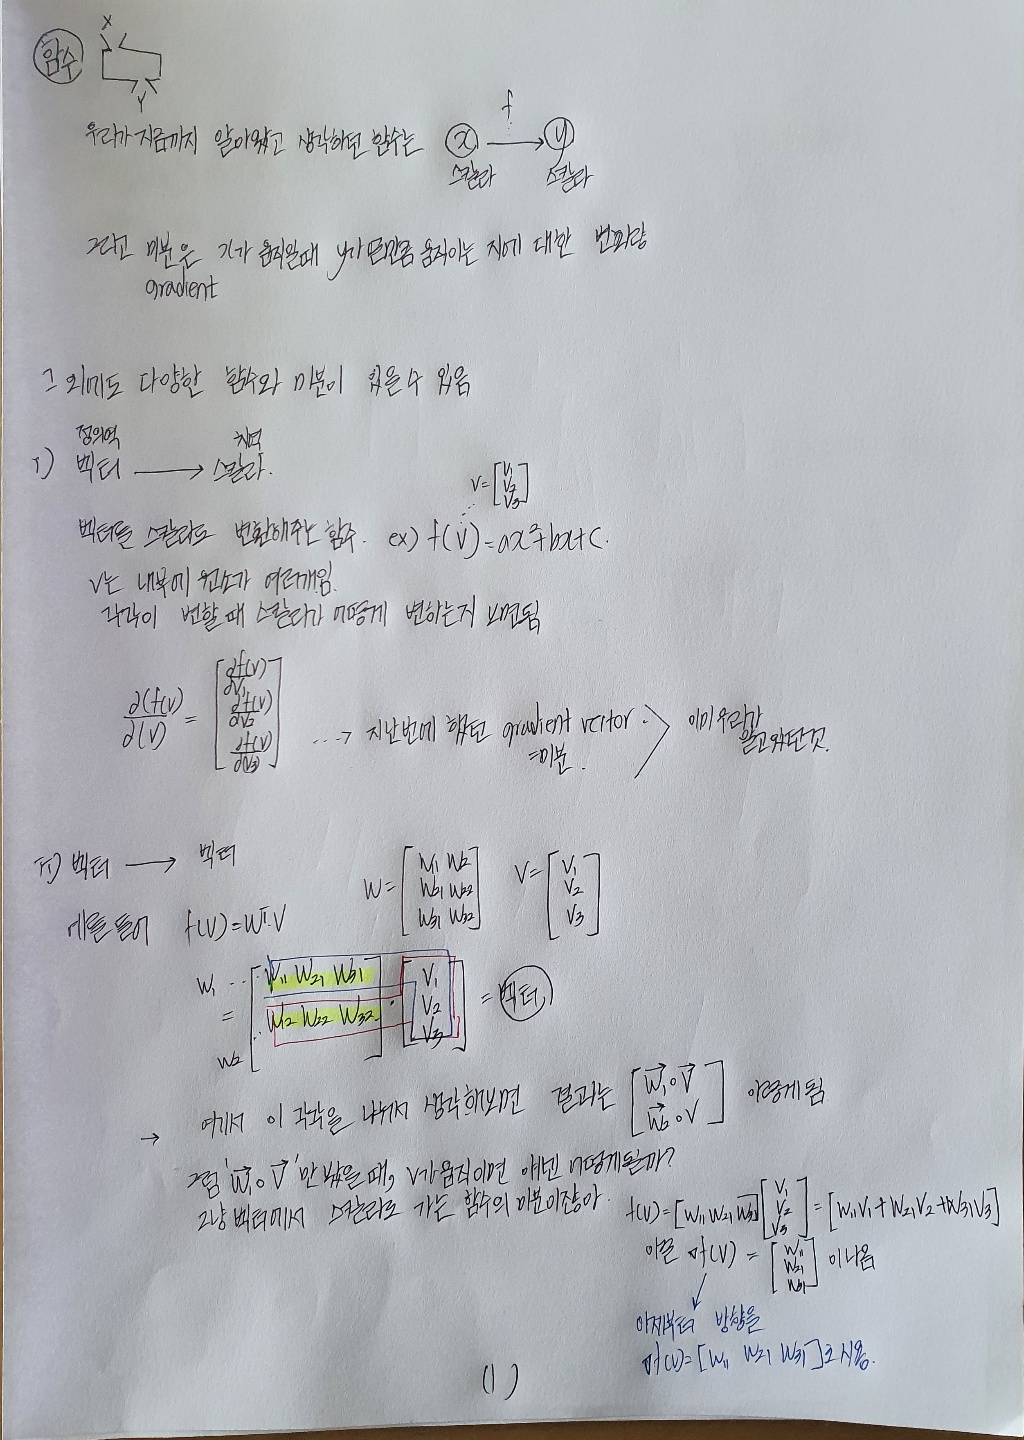 X
함수
Y
우리가 지금까지 알아왔고 생각하던 함수는 x → y
f
스칼라 스칼라
그리고 미분은 x가 움직일때 y가 얼만큼 움직이는 지에 대한 변화량
gradient
그 외에도 다양한 함수와 미분이 있을 수 있음
정의역 치역
I) 벡터 → 스칼라.
V = [V1 V2 V3]
벡터를 스칼라로 변환해주는 함수. ex) f(V) = ax²+bx+c.
V는 내부에 원소가 여러개임.
각각이 변할 때 스칼라가 어떻게 변하는지 보면됨
∂(f(V))/∂(V) = [∂f(V)/∂V1 ∂f(V)/∂V2 ∂f(V)/∂V3] ...→ 지난번에 했던 gradient vector. 이미 우리가
=미분. 알고있던것.
II) 벡터 → 벡터
W = [W11 W12 W21 W22 W31 W32] V = [V1 V2 V3]
예를 들어 f(V) = Wᵀ·V
W1 ... [W11 W21 W31] [V1
= [W12 W22 W32] · V2 = 벡터
W2 V3]
→ 여기서 이 각각을 나눠서 생각해보면 결과는 [W1∘V W2∘V] 이렇게 됨
그럼 'W1∘V'만 봤을 때, V가 움직이면 얘넨 어떻게될까?
그냥 벡터에서 스칼라로 가는 함수의 미분이잖아.
f(V) = [W11 W21 W31] [V1 V2 V3] = [W11V1 + W21V2 + W31V3]
∂f(V) = [W11 W21 W31] 이 나옴
이제부터 방향을
∂f(V) = [W11 W21 W31]로 사용.
(1)